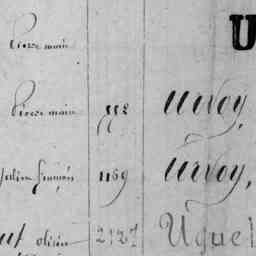 Pierre marie U
Pierre marie Urvoy,
Julien françois 1169 Urvoy,
olivier 2127 Uguel